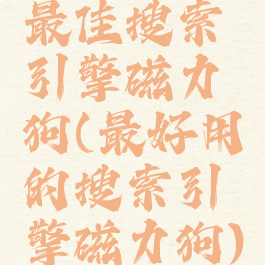 最佳搜索
引擎磁力
狗(最好用
的搜索引
擎磁力狗)